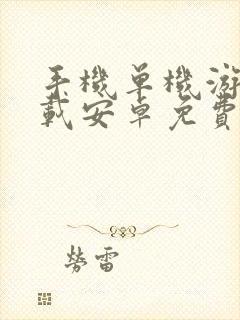 手機單機游
載安卓免費
勞雷